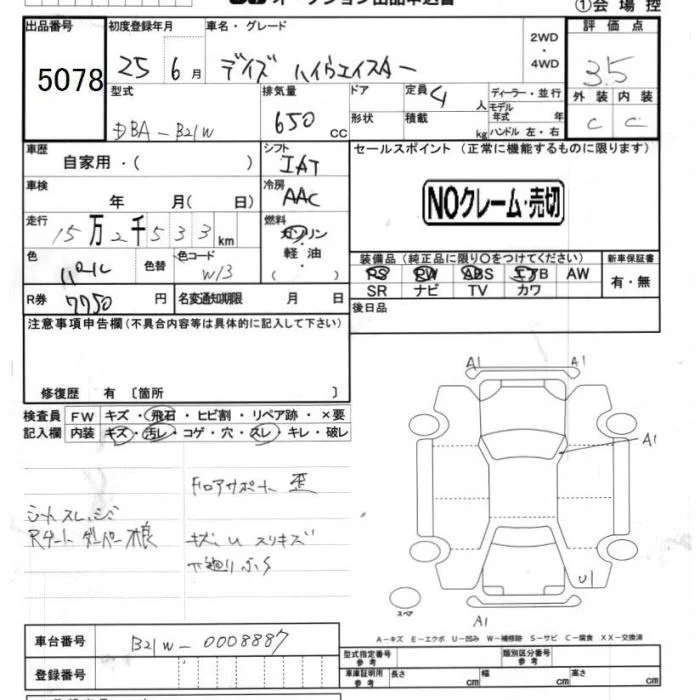 オークション出品申込書
①会場控
出品番号 初度登録年月 車名・グレード 2WD・4WD 評価点
5078 25 6月 デイズ ハイウェイスター 3.5
型式 排気量 ドア 定員 4人 ディーラー・並行 外装 内装
DBA-B21W 650cc 形状 積載 kg モデル年式 年 ハンドル 左・右 C C
車歴 シフト セールスポイント (正常に機能するものに限ります)
自家用・( ) IAT
車検 冷房 NOクレーム・売切
年 月( 日) AAC
走行 燃料
15万2千533km ガソリン・軽油・( )
色 色替 色コード 装備品 (純正品に限り○をつけてください) 新車保証書
パール W13 PS PW ABS エアB AW 有・無
R券 7750円 名変通知期限 月 日 SR ナビ TV カワ
注意事項申告欄 (不具合内容等は具体的に記入して下さい) 後日品
修復歴 有 〔箇所 〕
検査員 FW キズ・飛石・ヒビ割・リペア跡・×要
記入欄 内装 キズ・汚レ・コゲ・穴・スレ・キレ・破レ
A1 A1
A1
フロアサポート 歪
シートスレ、シミ
Rゲートダンパー不良 キズ、U スリキズ
下廻りふら
U1
スペア A1
A-キズ E-エクボ U-凹み W-補修跡 S-サビ C-腐食 XX-交換済
車台番号 B21W-0008887
型式指定番号 参考 類別区分番号 参考
登録番号 車庫証明用 参考 長さ cm 幅 cm 高さ cm